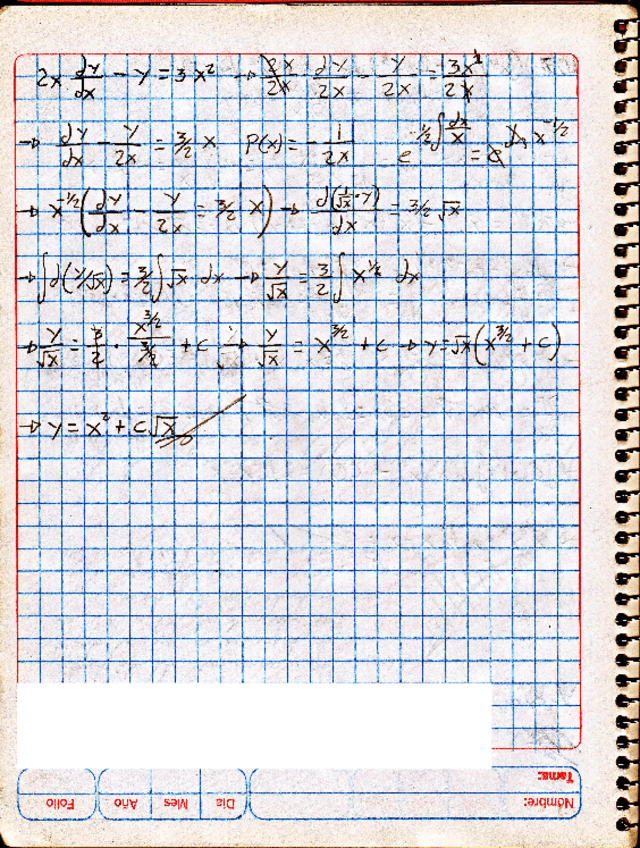 2x dy/dx - y = 3x² → 2x/2x dy/2x - y/2x = 3x²/2x
→ dy/dx - y/2x = 3/2 x P(x) = - 1/2x e^(-1/2 ∫ dx/x) = e^(ln x^(-1/2))
→ x^(-1/2) (dy/dx - y/2x = 3/2 x) → d(1/√x · y)/dx = 3/2 √x
→ ∫ d(y/√x) = 3/2 ∫ √x dx → y/√x = 3/2 ∫ x^(1/2) dx
→ y/√x = 3/2 · x^(3/2)/(3/2) + c → y/√x = x^(3/2) + c → y = √x (x^(3/2) + c)
→ y = x² + c√x
Folio Año Mes Día
Tema:
Nombre: